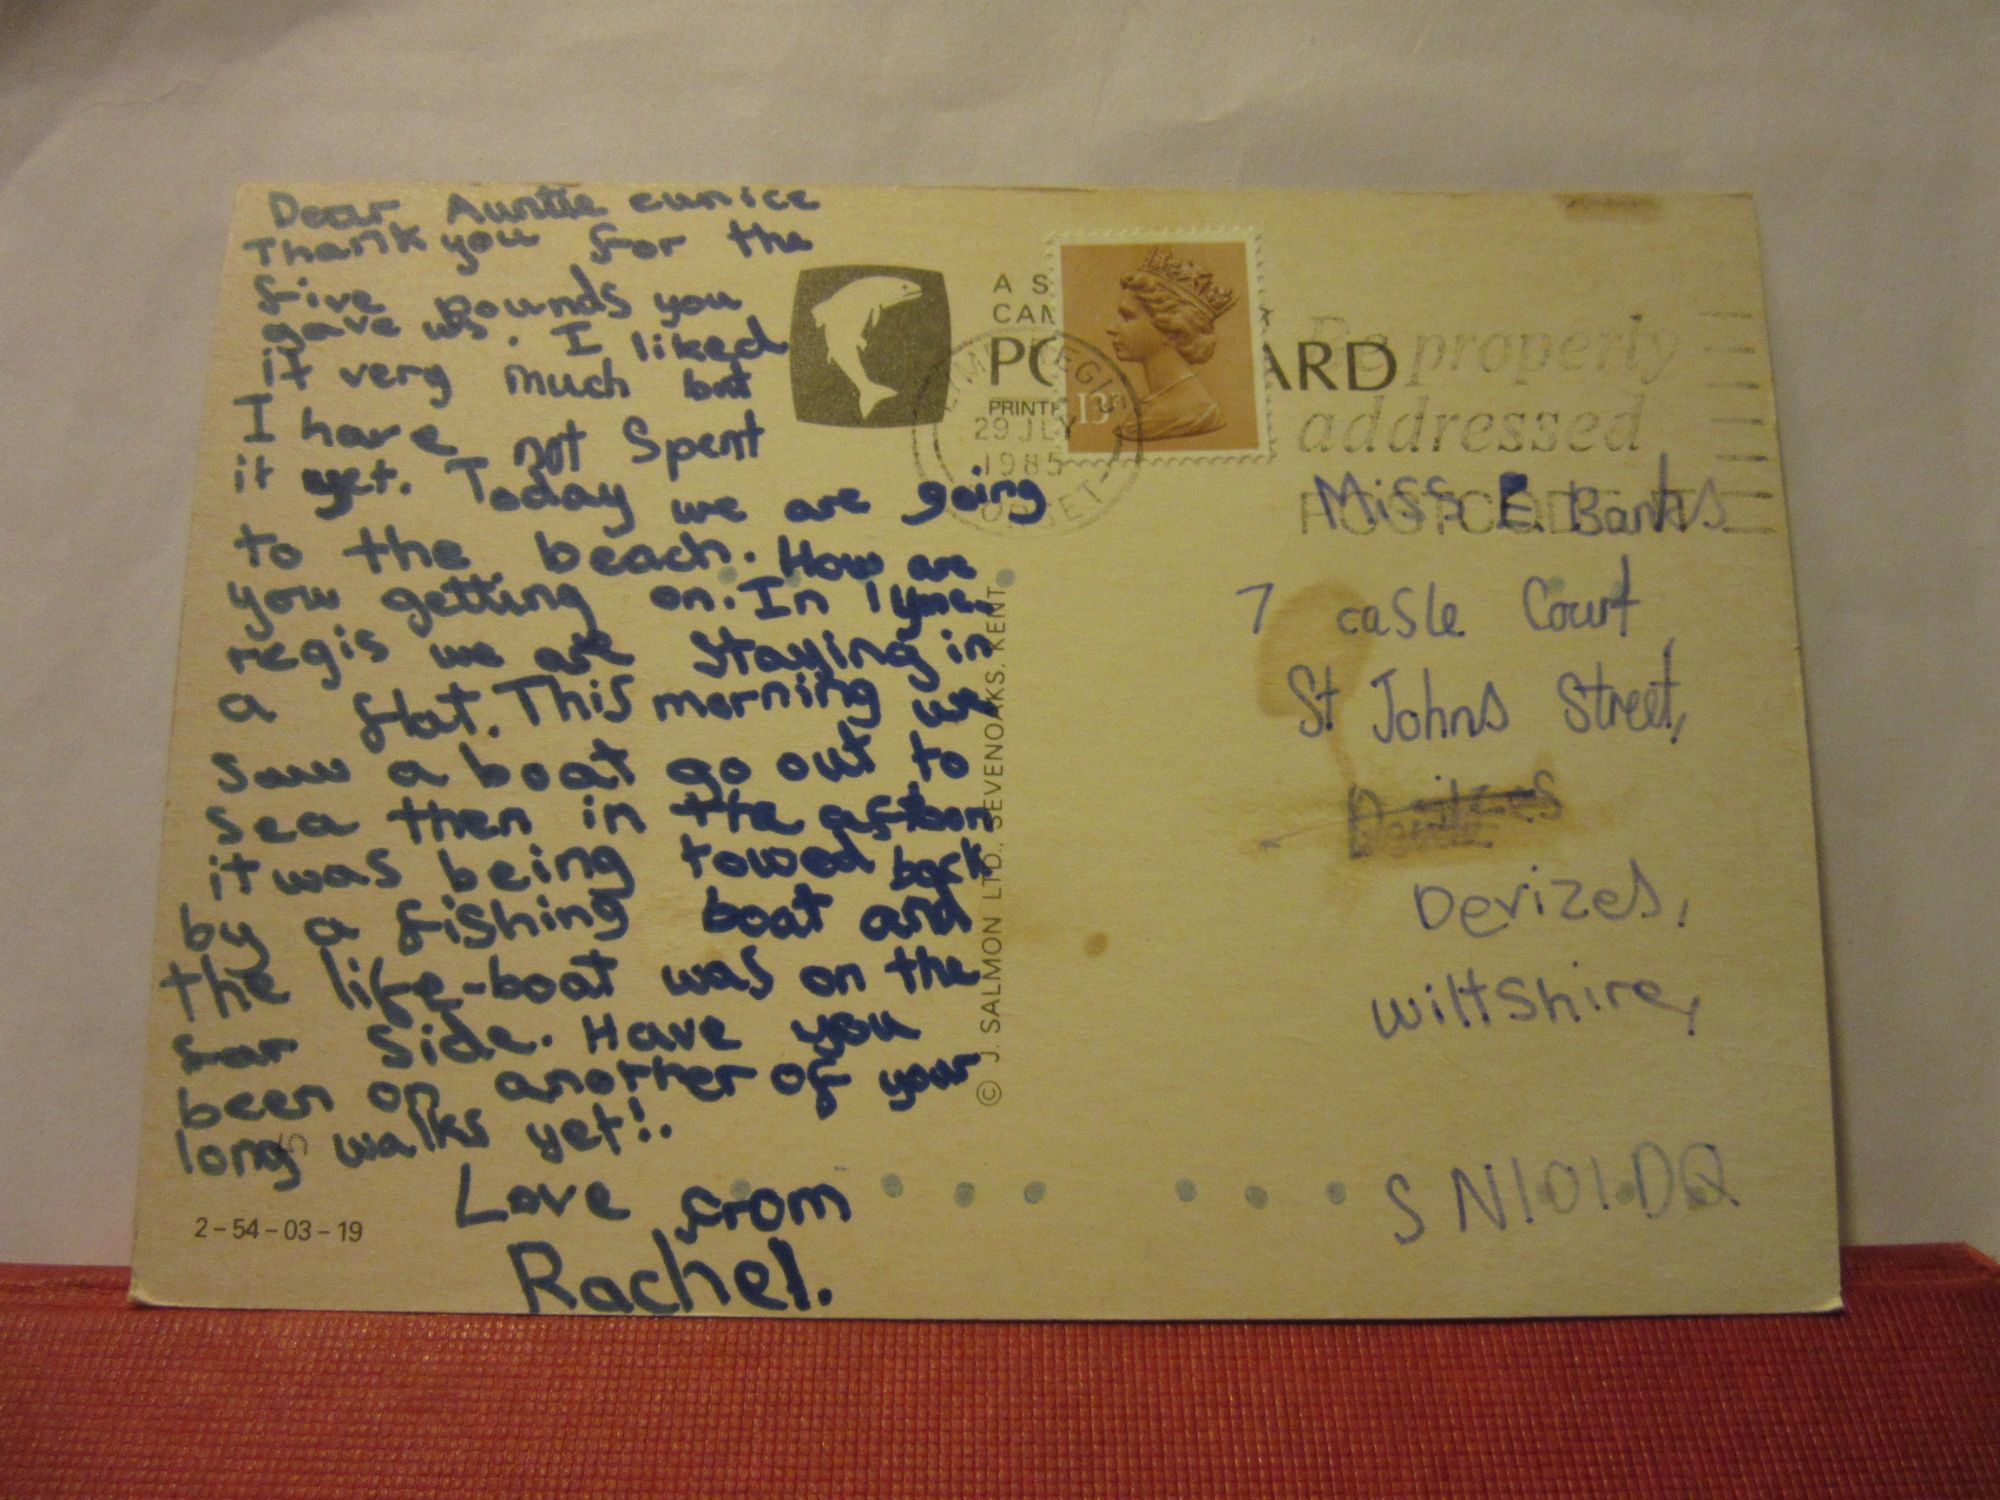 Dear Auntie eunice
Thank you for the
five pounds you
gave us. I liked
it very much but
I have not Spent
it yet. Today we are going
to the beach. How are
you getting on. In lyme
regis we are Staying in
a flat. This morning we
saw a boat go out to
sea then in the aftoon
it was being towed back
by a fishing boat and
the life-boat was on the
far side. Have you
been on another of your
long walks yet!.
Love from
Rachel.
2-54-03-19
A S
CAN
PO ARD
PRINTE
LYME REGIS
29 JLY
1985
DORSET
13P
Be properly
addressed
POSTCODE IT
© J. SALMON LTD., SEVENOAKS, KENT
Miss E. Banks
7 casle Court
St Johns Street,
Devizes,
wiltshire,
SN10 1DQ